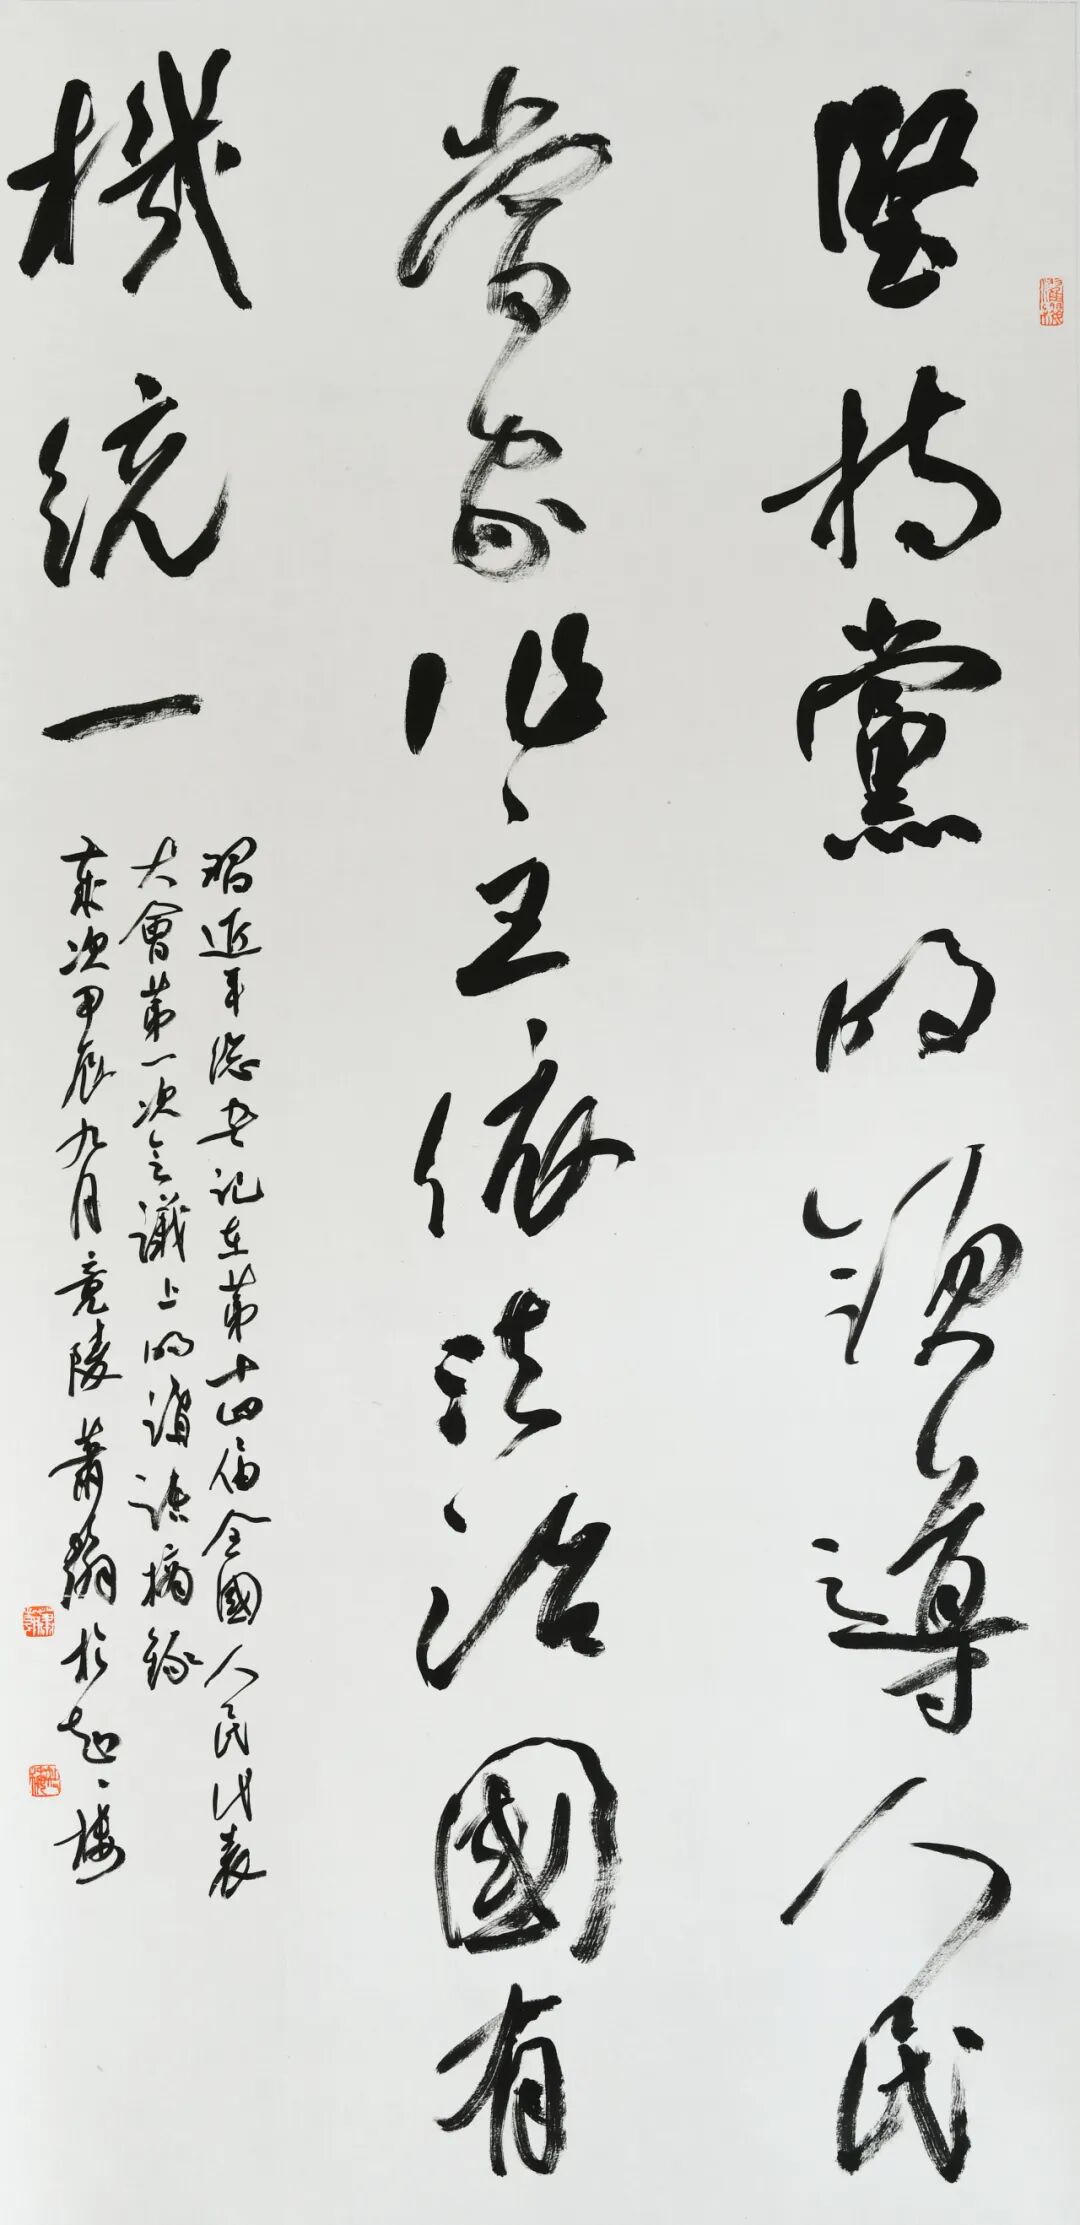 堅持黨的領導人民
當家作主依法治國有
機統一
習近平總書記在第十四屆全國人民代表
大會第一次會議上的講話摘錄
歲次甲辰九月竟陵蕭翰於起之樓